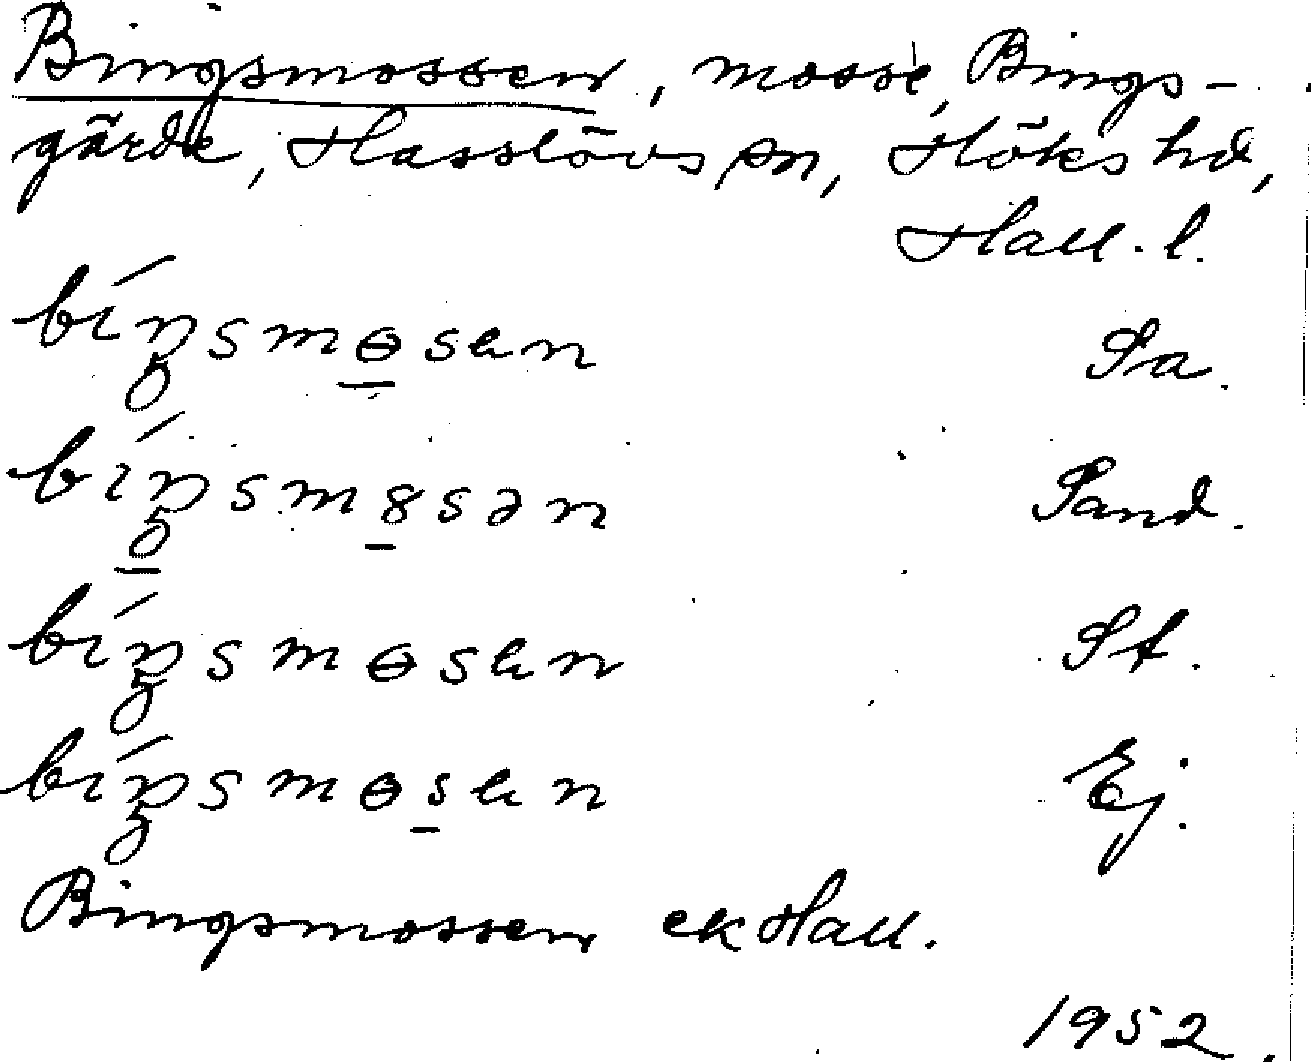 Bingsmossen, mosse, Bings-
gärde, Hasslövs sn, Höks hd,
Hall. l.
bíŋsmɵsen Sa.
bíŋsm8sən Sand.
bíŋsmɵsen St.
bíŋsmɵsen Ej.
Bingsmossen ek Hall.
1952.